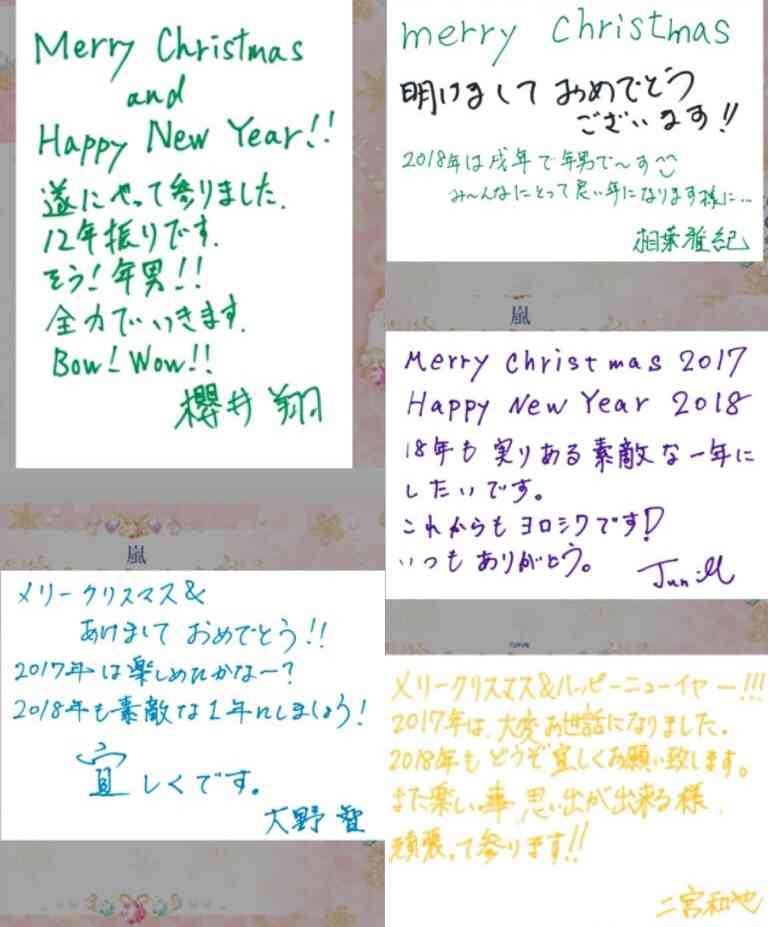 Merry Christmas
and
Happy New Year!!
遂にやって参りました.
12年振りです.
そう!年男!!
全力でいきます.
Bow! Wow!!
櫻井翔
merry christmas
明けまして おめでとう
ございます!!
2018年は戌年で年男で〜す
み〜んなにとって良い年になります様に...
相葉雅紀
嵐
Merry Christmas 2017
Happy New Year 2018
18年も 実りある素敵な一年に
したいです。
これからもヨロシクです!
いつもありがとう。
Jun.M
嵐
メリークリスマス&
あけまして おめでとう!!
2017年は楽しめたかなー?
2018年も素敵な1年にしましょう!
宜しくです。
大野智
メリークリスマス&ハッピーニューイヤー!!!
2017年は、大変お世話になりました。
2018年もどうぞ宜しくお願い致します。
また楽しい事、思い出が出来る様、
頑張って参ります!!
二宮和也